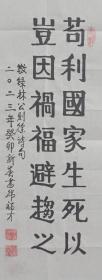 苟利國家生死以
豈因禍福避趨之
敬錄林公則徐詩句
二〇二三年癸卯新春書